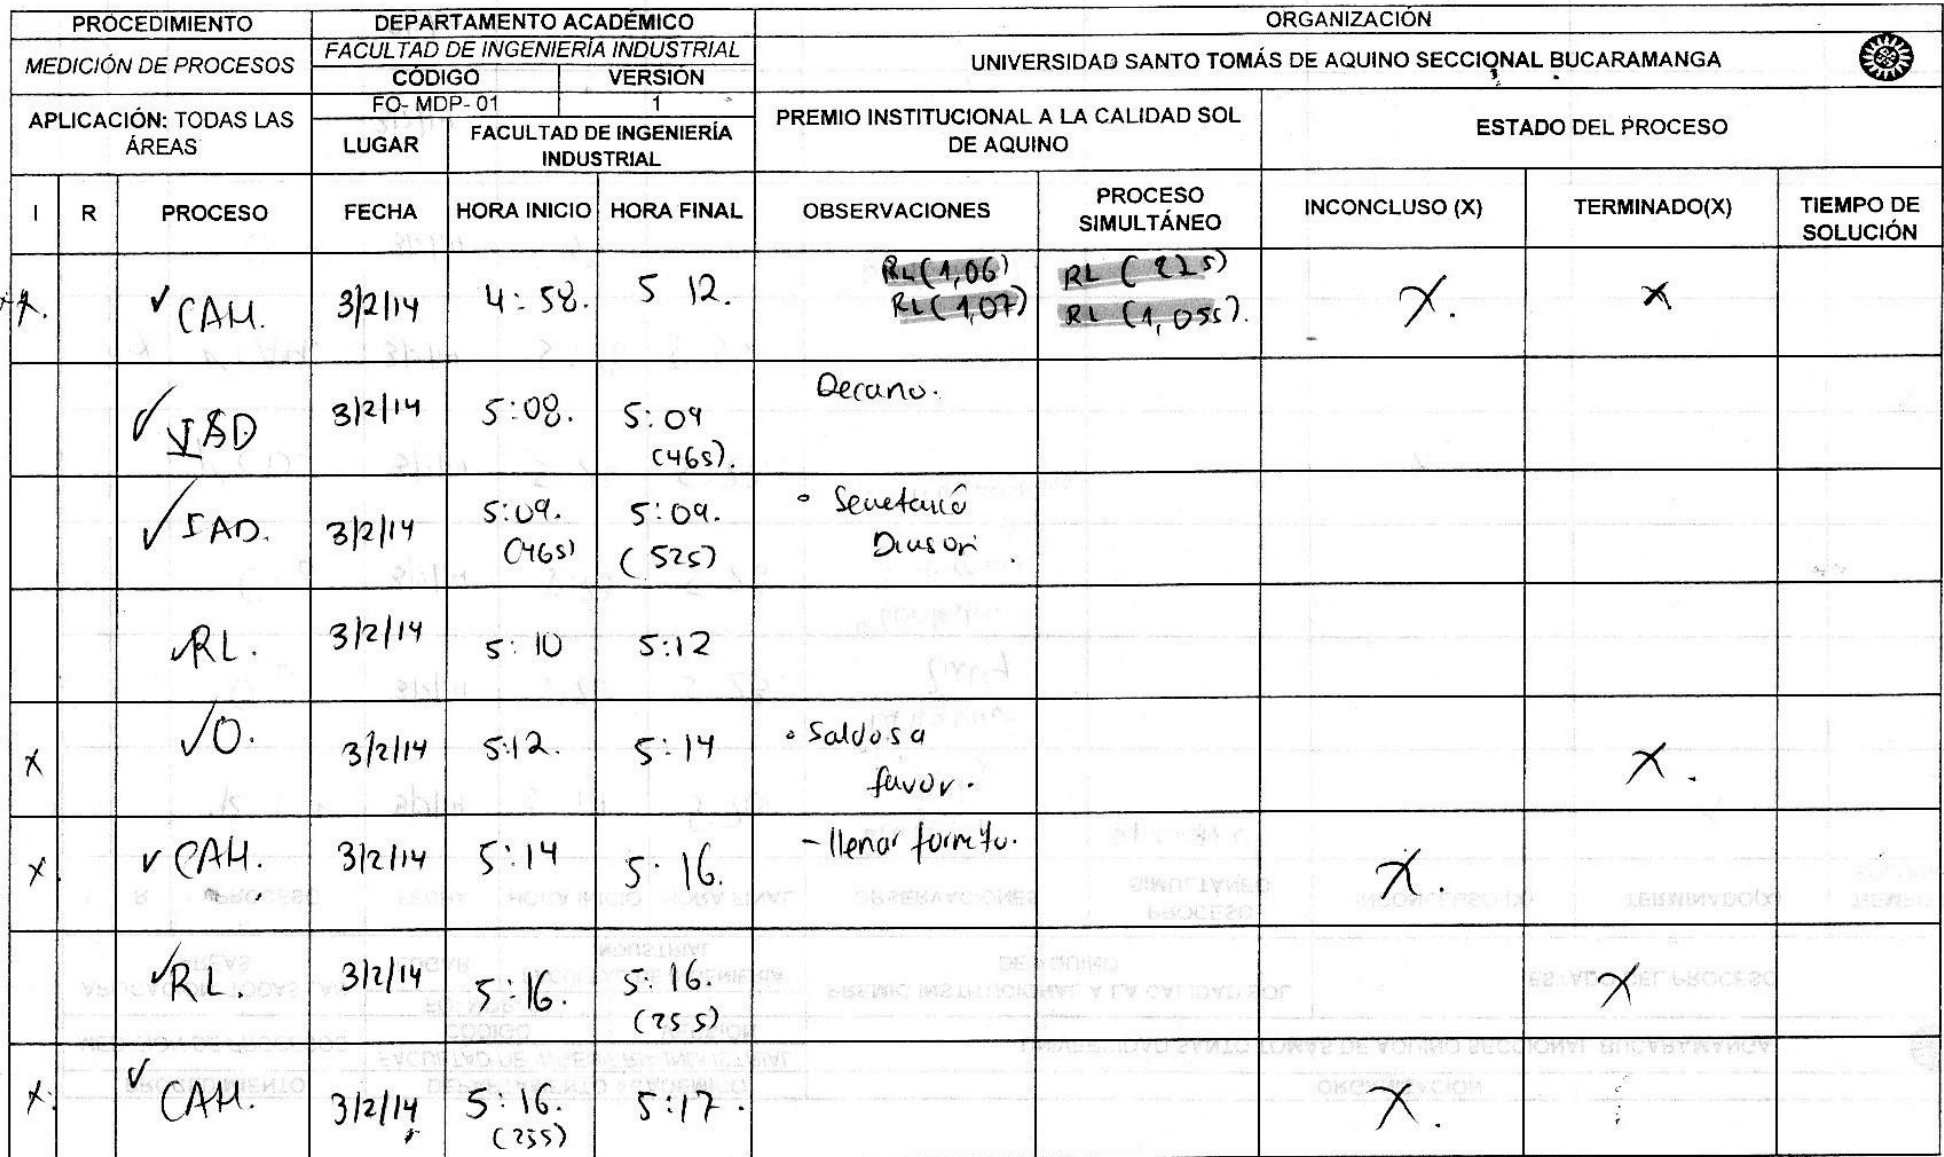 PROCEDIMIENTO DEPARTAMENTO ACADÉMICO ORGANIZACIÓN
MEDICIÓN DE PROCESOS FACULTAD DE INGENIERÍA INDUSTRIAL UNIVERSIDAD SANTO TOMÁS DE AQUINO SECCIONAL BUCARAMANGA
CÓDIGO VERSIÓN
FO- MDP- 01 1
APLICACIÓN: TODAS LAS ÁREAS LUGAR FACULTAD DE INGENIERÍA INDUSTRIAL PREMIO INSTITUCIONAL A LA CALIDAD SOL DE AQUINO ESTADO DEL PROCESO
I R PROCESO FECHA HORA INICIO HORA FINAL OBSERVACIONES PROCESO SIMULTÁNEO INCONCLUSO (X) TERMINADO(X) TIEMPO DE SOLUCIÓN
✓ CAH. 3/2/14 4:58. 5 12. RL(1,06) RL (22s) X. X
RL(1,07) RL (1,05s).
✓ 3/2/14 5:08. 5:09 Decano.
(46s).
✓ IAD. 3/2/14 5:09. 5:09. °
(46s) (52s)
✓RL. 3/2/14 5:10 5:12
X ✓O. 3/2/14 5:12. 5:14 ° Saldos a X.
favor.
X ✓ CAH. 3/2/14 5:14 5:16. - llenar formato. X.
✓RL. 3/2/14 5:16. 5:16. X
(25s)
X ✓ CAH. 3/2/14 5:16. 5:17. X.
(25s)